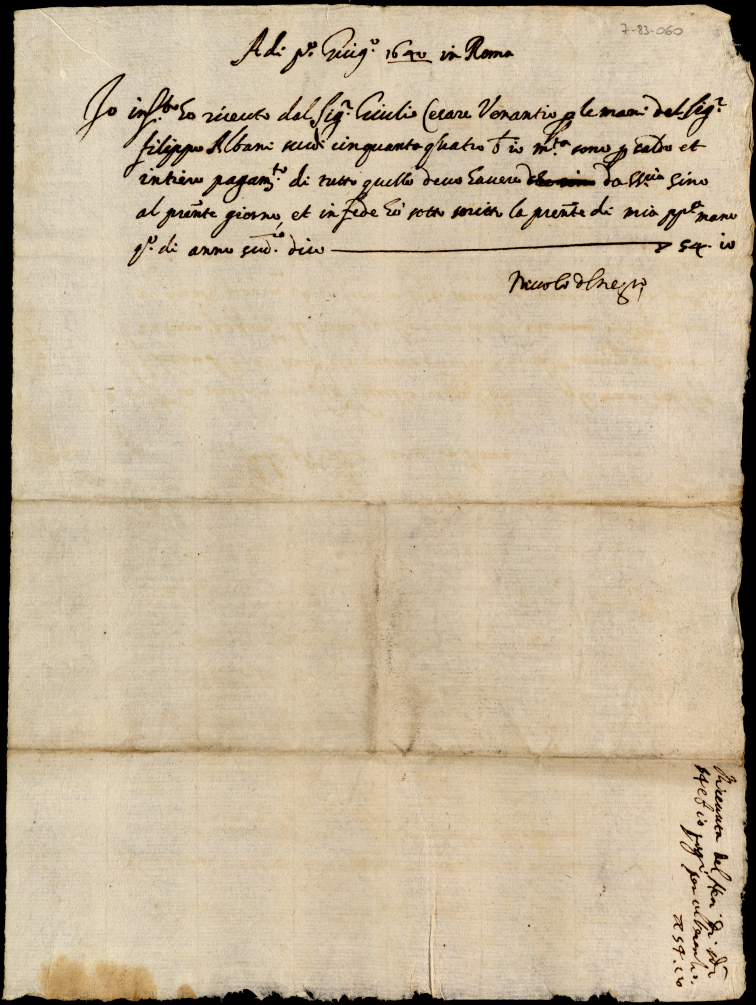 7-83-060
Adi p.º Giug.º 1640 in Roma
Io inf.tto ho riceuto dal Sig.r Giulio Cesare Venantio p le mani del Sig.r
filippo Albani scudi cinquanta quatro b 10 m.ta sono p saldo et
intiero pagam.to di tutto quello devo havere da S.ria sino
al prñte giorno, et in fede ho sotto scritto la prñte di mia pp.a mano
q.º di anno sud.º dico 54. 10
Niccolo
Ricevuta del
54 et 10
54. 10